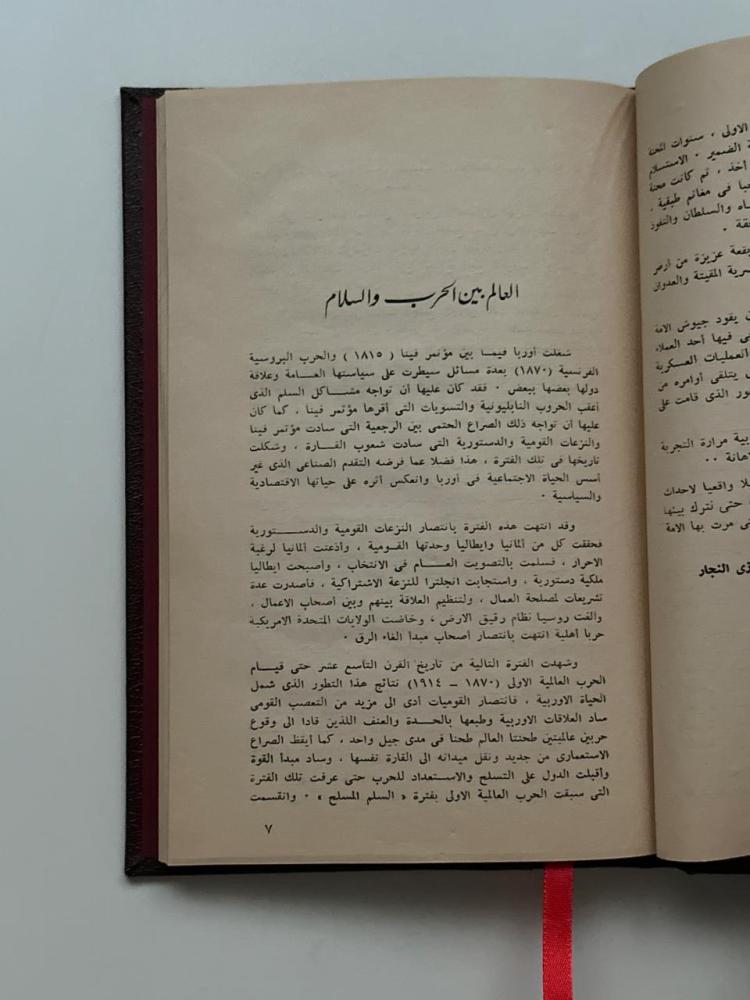 العالم بين الحرب والسلام
شغلت أوربا فيمـا بين مؤتمر فينا (١٨١٥) والحرب البروسية
الفرنسية (١٨٧٠) بعدة مسائل سيطرت على سياستها العـامة وعلاقة
دولها بعضها ببعض . فقد كان عليها أن تواجه مشـاكل السلم الذى
أعقب الحروب النابليونية والتسويات التى أقرها مؤتمر فينا ، كما كان
عليها أن تواجه ذلك الصراع الحتمى بين الرجعية التى سادت مؤتمر فينا
والنزعات القومية والدستورية التى سادت شعوب القـارة ، وشكلت
تاريخها فى تلك الفترة ، هذا فضلا عما فرضه التقدم الصناعى الذى غير
أسس الحياة الاجتماعية فى أوربا وانعكس أثره على حياتها الاقتصادية
والسياسية .
وقد انتهت هذه الفترة بانتصار النزعات القومية والدسـتورية
فحققت كل من ألمانيا وايطاليا وحدتها القـومية ، وأذعنت ألمانيا لرغبة
الاحرار ، فسلمت بالتصويت العـام فى الانتخاب ، وأصبحت ايطاليا
ملكية دستورية ، واستجابت انجلترا للنزعة الاشتراكية ، فأصدرت عدة
تشريعات لمصلحة العمال ، ولتنظيم العلاقة بينهم وبين أصحاب الاعمال ،
والغت روسيا نظام رقيق الارض ، وخاضت الولايات المتحدة الامريكية
حربا أهلية انتهت بانتصار أصحاب مبدأ الغاء الرق .
وشهدت الفترة التالية من تاريخ القرن التاسع عشر حتى قيـام
الحرب العالمية الاولى (١٨٧٠ ــ ١٩١٤) نتائج هذا التطور الذى شمل
الحياة الاوربية ، فانتصار القوميات أدى الى مزيد من التعصب القومى
ساد العلاقات الاوربية وطبعها بالحـدة والعنف اللذين قادا الى وقوع
حربين عالميتين طحنتا العالم طحنا فى مدى جيل واحد ، كما أيقظ الصراع
الاستعمارى من جديد ونقل ميدانه الى القارة نفسها ، وساد مبدأ القوة
وأقبلت الدول على التسلح والاسـتعداد للحرب حتى عرفت تلك الفترة
التى سبقت الحرب العالمية الاولى بفترة « السلم المسلح » . وانقسمت
٧
الاولى ، سنوات المحنة
الضمير . الاستسلام
أخذ ، ثم كانت محنة
فى مغانم طبقية .
والسلطان والنفوذ
بقعة عزيزة من أرض
المقيتة والعدوان
يقود جيوش الامة
فيها أحد العملاء
العمليات العسكرية
يتلقى أوامره من
الذى قامت على
مرارة التجربة
واقعيا لاحداث
حتى نترك بينها
مرت بها الامة
النجار